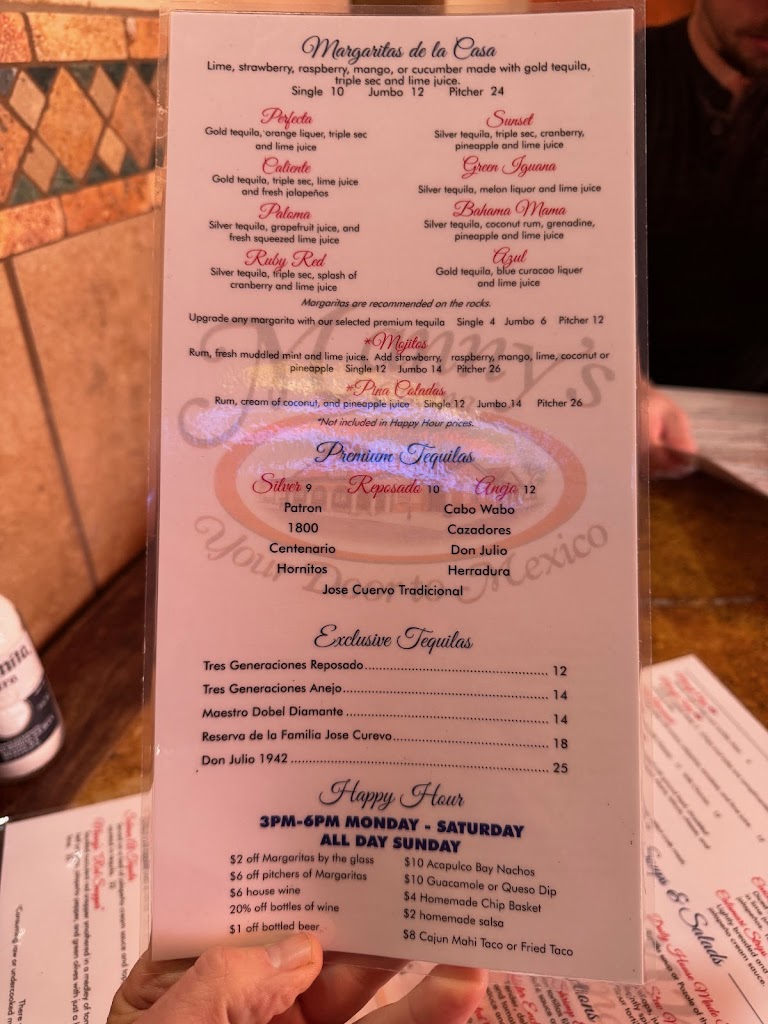 Margaritas de la Casa
Lime, strawberry, raspberry, mango, or cucumber made with gold tequila,
triple sec and lime juice.
Single 10 Jumbo 12 Pitcher 24
Perfecta
Gold tequila, orange liquer, triple sec
and lime juice
Caliente
Gold tequila, triple sec, lime juice
and fresh jalapeños
Paloma
Silver tequila, grapefruit juice, and
fresh squeezed lime juice
Ruby Red
Silver tequila, triple sec, splash of
cranberry and lime juice
Sunset
Silver tequila, triple sec, cranberry,
pineapple and lime juice
Green Iguana
Silver tequila, melon liquor and lime juice
Bahama Mama
Silver tequila, coconut rum, grenadine,
pineapple and lime juice
Azul
Gold tequila, blue curacao liquer
and lime juice
Margaritas are recommended on the rocks.
Upgrade any margarita with our selected premium tequila Single 4 Jumbo 6 Pitcher 12
*Mojitos
Rum, fresh muddled mint and lime juice. Add strawberry, raspberry, mango, lime, coconut or
pineapple Single 12 Jumbo 14 Pitcher 26
*Pina Coladas
Rum, cream of coconut, and pineapple juice Single 12 Jumbo 14 Pitcher 26
*Not included in Happy Hour prices.
Manny's
Your Door to Mexico
Premium Tequilas
Silver 9 Reposado 10 Anejo 12
Patron Cabo Wabo
1800 Cazadores
Centenario Don Julio
Hornitos Herradura
Jose Cuervo Tradicional
Exclusive Tequilas
Tres Generaciones Reposado 12
Tres Generaciones Anejo 14
Maestro Dobel Diamante 14
Reserva de la Familia Jose Curevo 18
Don Julio 1942 25
Happy Hour
3PM-6PM MONDAY - SATURDAY
ALL DAY SUNDAY
$2 off Margaritas by the glass
$6 off pitchers of Margaritas
$6 house wine
20% off bottles of wine
$1 off bottled beer
$10 Acapulco Bay Nachos
$10 Guacamole or Queso Dip
$4 Homemade Chip Basket
$2 homemade salsa
$8 Cajun Mahi Taco or Fried Taco
Soups & Salads